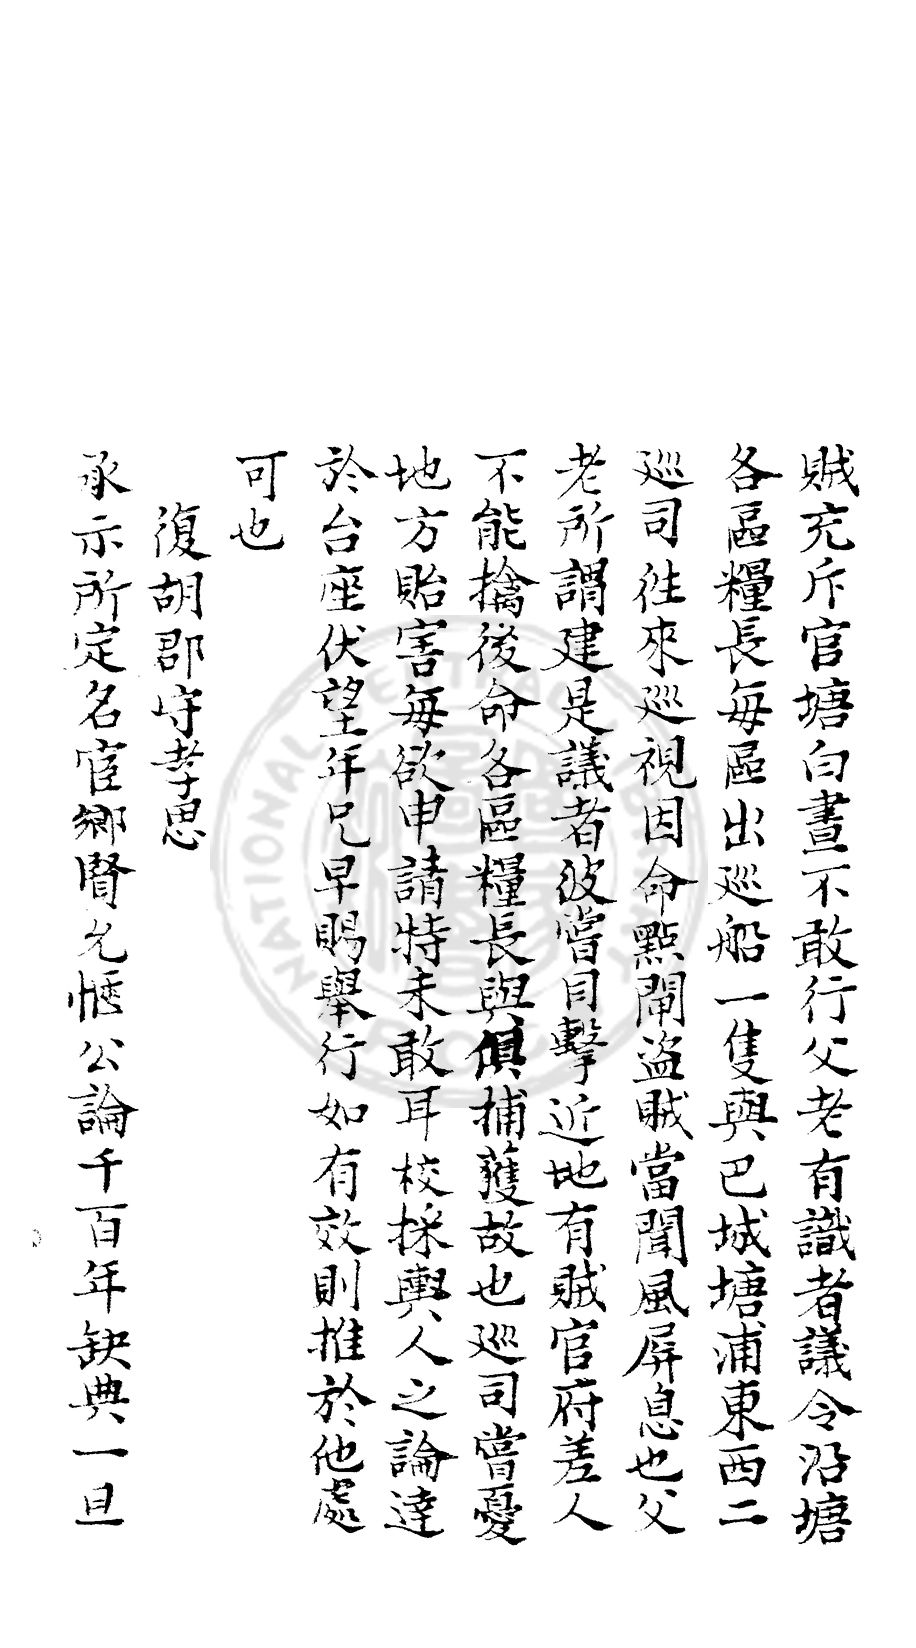 賊充斥官塘白晝不敢行父老有識者議令沿塘
各區糧長每區出巡船一隻與巴城塘浦東西二
巡司往來巡視因命點閘盜賊當聞風屏息也父
老所謂建是議者彼嘗目擊近地有賊官府差人
不能擒後命各區糧長與俱捕獲故也巡司嘗憂
地方貽害每欲申請特未敢耳校採輿人之論達
於台座伏望年兄早賜舉行如有效則推於他處
可也
復胡郡守孝思
承示所定名宦鄉賢允愜公論千百年缺典一旦
NATIONAL CENTRAL LIBRARY